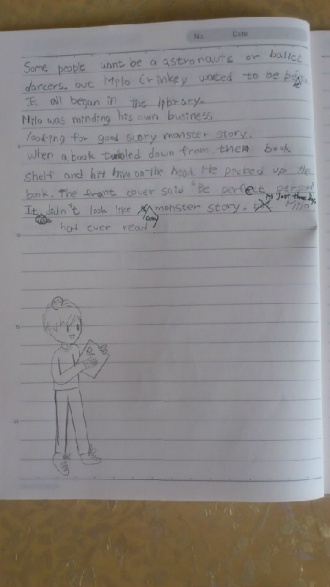 No.    Date
Some people want be a astronauts or ballet
dancers, but Milo Crinkey wanted to be
It all began in the library.
Milo was minding his own business
looking for good story monster story.
when a book tumbled down from them book
shelf and hit him on the head. He picked up the
book. The front cover said "Be perfect person
in Just three days
It didn't look like any monster story. Milo
had ever read